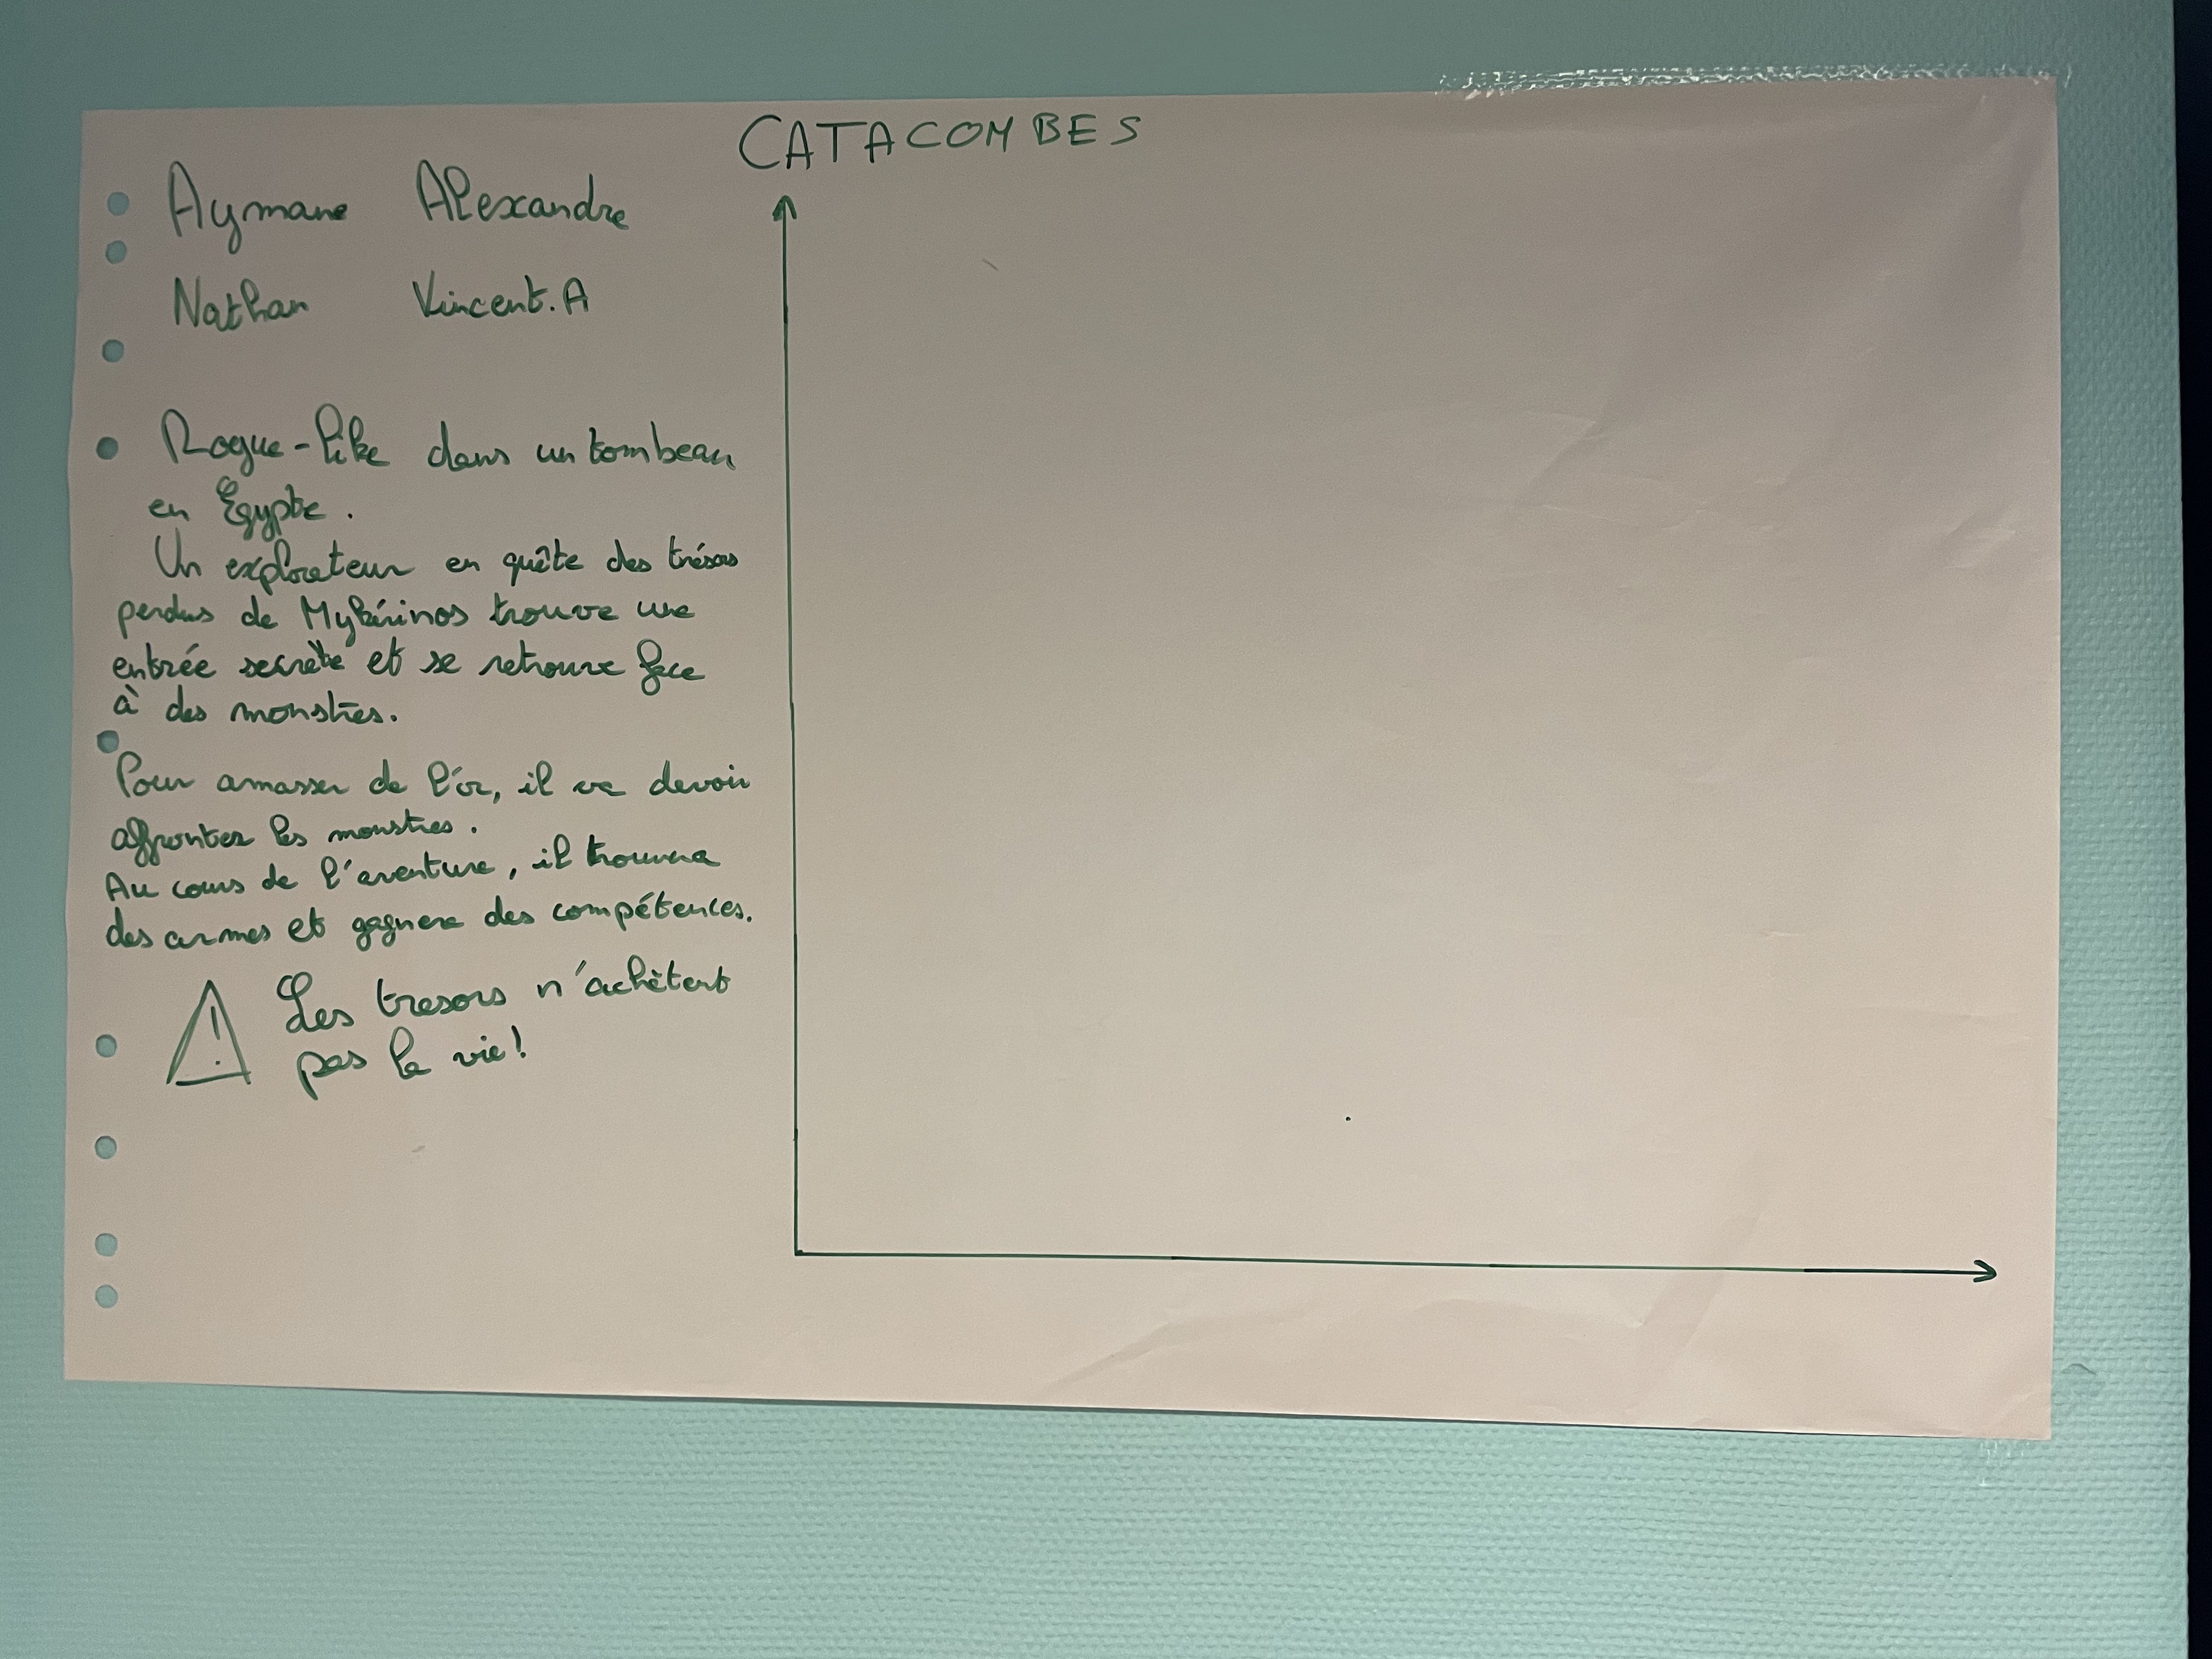 CATACOMBES
Aymane Alexandre
Nathan Vincent.A
Rogue-like dans un tombeau
en Égypte.
Un explorateur en quête des trésors
perdus de Mykérinos trouve une
entrée secrète et se retrouve face
à des monstres.
Pour amasser de l'or, il va devoir
affronter les monstres.
Au cours de l'aventure, il trouvera
des armes et gagnera des compétences.
Les tresors n'achètent
pas la vie!